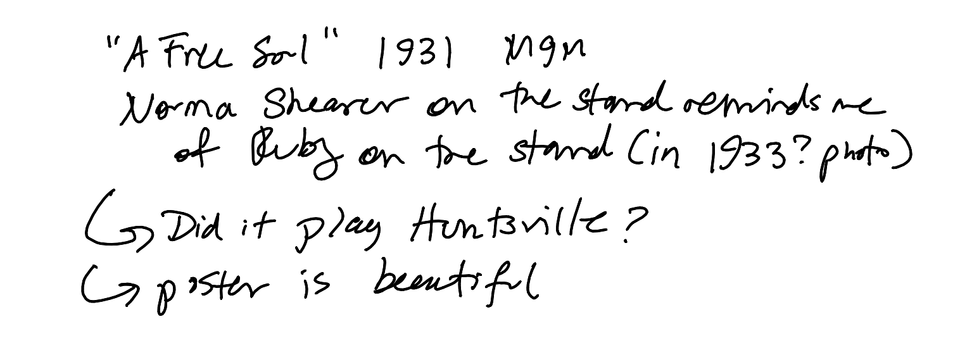 "A Free Soul" 1931 MGM
Norma Shearer on the stand reminds me
of Ruby on the stand (in 1933? photo)
↳ Did it play Huntsville?
↳ poster is beautiful